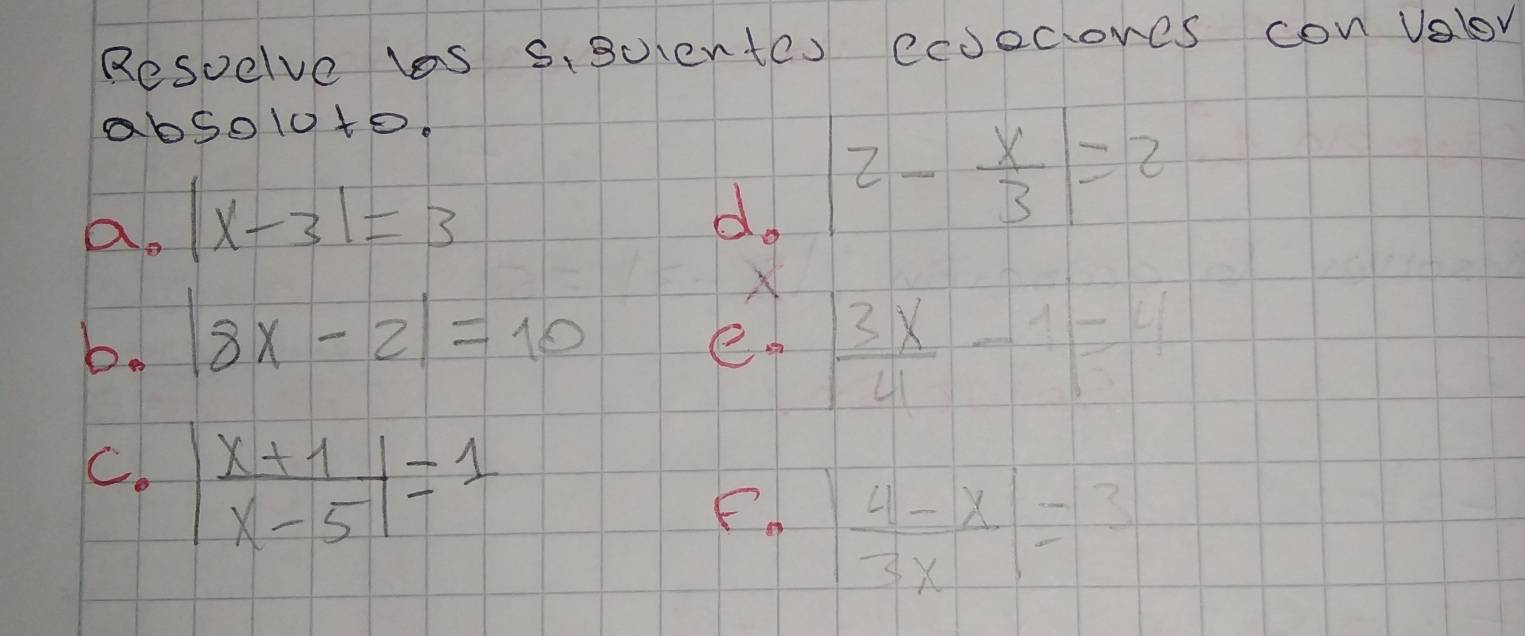 Resuelve las siguientes ecuaciones con valor
absoluto.
a. |x-3| = 3
b. |8x - 2| = 10
c. |x+1 / x-5| = 1
d. |2 - x/3| = 2
x
e. |3x/4 - 1| = 4
F. |4-x / 3x| = 3